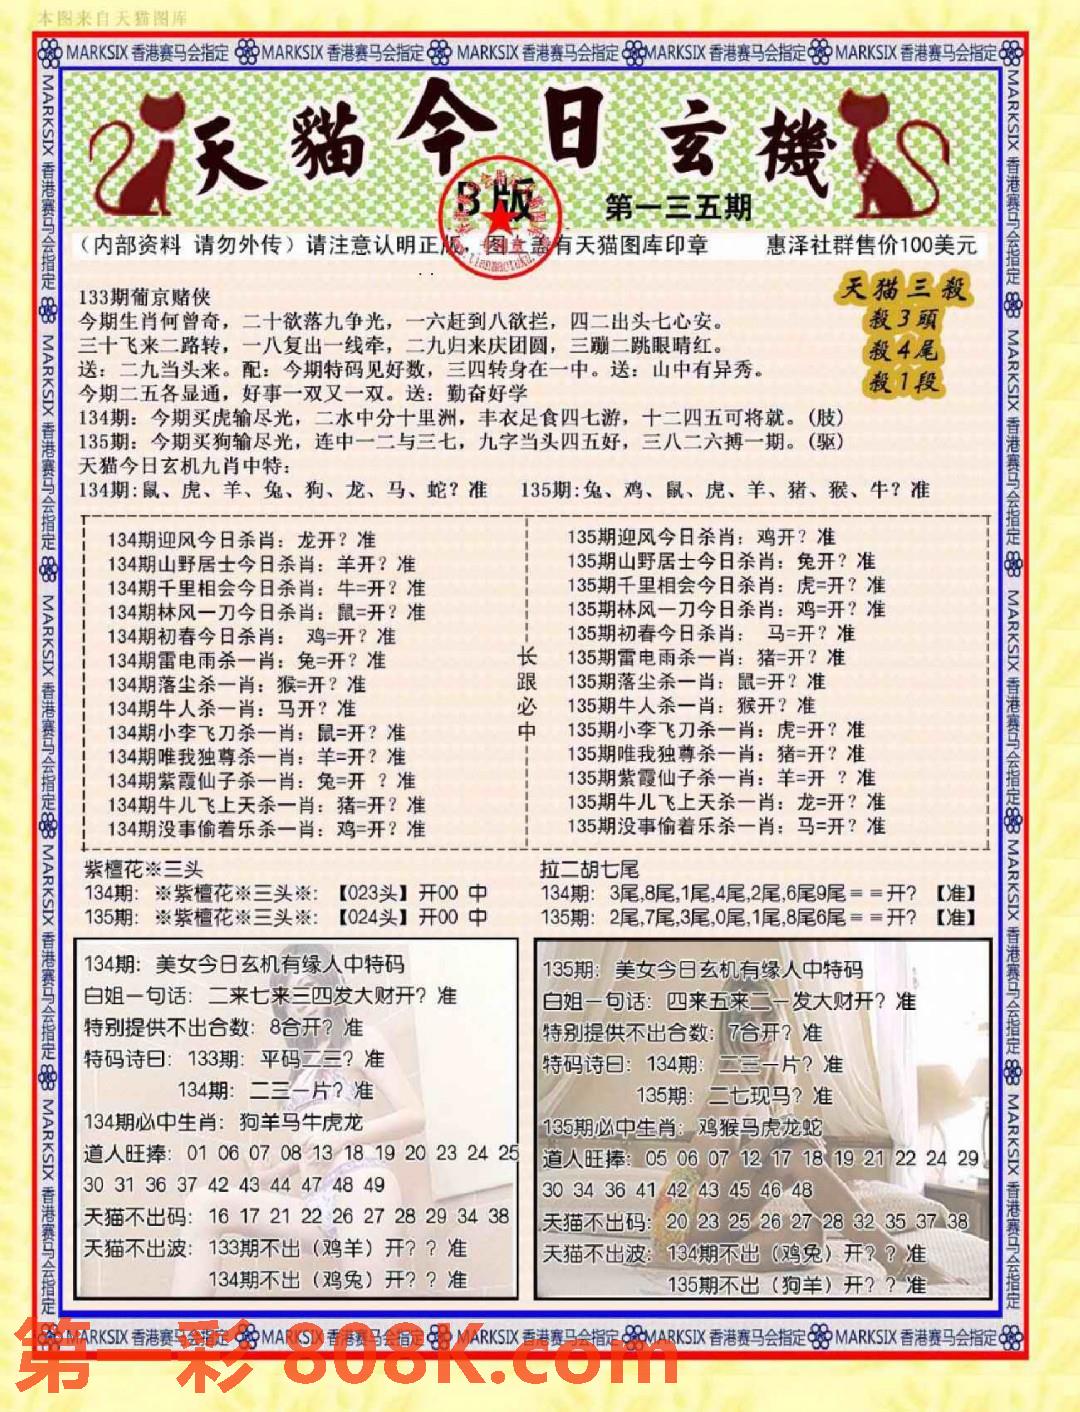 本图来自天猫图库
MARKSIX 香港赛马会指定 MARKSIX 香港赛马会指定 MARKSIX 香港赛马会指定 MARKSIX 香港赛马会指定 MARKSIX 香港赛马会指定
天貓今日玄機
B版
第一三五期
（内部资料 请勿外传）请注意认明正版，图上盖有天猫图库印章 惠泽社群售价100美元
天猫三殺
殺3頭
殺4尾
殺1段
133期葡京赌侠
今期生肖何曾奇，二十欲落九争光，一六赶到八欲拦，四二出头七心安。
三十飞来二路转，一八复出一线牵，二九归来庆团圆，三蹦二跳眼晴红。
送：二九当头来。配：今期特码见好数，三四转身在一中。送：山中有异秀。
今期二五各显通，好事一双又一双。送：勤奋好学
134期：今期买虎输尽光，二水中分十里洲，丰衣足食四七游，十二四五可将就。(肢)
135期：今期买狗输尽光，连中一二与三七，九字当头四五好，三八二六搏一期。(驱)
天猫今日玄机九肖中特：
134期:鼠、虎、羊、兔、狗、龙、马、蛇？准 135期:兔、鸡、鼠、虎、羊、猪、猴、牛？准
134期迎风今日杀肖：龙开？准
134期山野居士今日杀肖：羊开？准
134期千里相会今日杀肖：牛=开？准
134期林风一刀今日杀肖：鼠=开？准
134期初春今日杀肖： 鸡=开？准
134期雷电雨杀一肖：兔=开？准
134期落尘杀一肖：猴=开？准
134期牛人杀一肖：马开？准
134期小李飞刀杀一肖：鼠=开？准
134期唯我独尊杀一肖：羊=开？准
134期紫霞仙子杀一肖：兔=开 ？准
134期牛儿飞上天杀一肖：猪=开？准
134期没事偷着乐杀一肖：鸡=开？准
长
跟
必
中
135期迎风今日杀肖：鸡开？准
135期山野居士今日杀肖：兔开？准
135期千里相会今日杀肖：虎=开？准
135期林风一刀今日杀肖：鸡=开？准
135期初春今日杀肖： 马=开？准
135期雷电雨杀一肖：猪=开？准
135期落尘杀一肖：鼠=开？准
135期牛人杀一肖：猴开？准
135期小李飞刀杀一肖：虎=开？准
135期唯我独尊杀一肖：猪=开？准
135期紫霞仙子杀一肖：羊=开 ？准
135期牛儿飞上天杀一肖：龙=开？准
135期没事偷着乐杀一肖：马=开？准
紫檀花※三头
134期：※紫檀花※三头※：【023头】开00 中
135期：※紫檀花※三头※：【024头】开00 中
拉二胡七尾
134期：3尾,8尾,1尾,4尾,2尾,6尾9尾＝＝开？【准】
135期：2尾,7尾,3尾,0尾,1尾,8尾6尾＝＝开？【准】
134期：美女今日玄机有缘人中特码
白姐一句话：二来七来三四发大财开？准
特别提供不出合数：8合开？准
特码诗曰：133期：平码二三？准
134期：二三一片？准
134期必中生肖：狗羊马牛虎龙
道人旺捧：01 06 07 08 13 18 19 20 23 24 25
30 31 36 37 42 43 44 47 48 49
天猫不出码：16 17 21 22 26 27 28 29 34 38
天猫不出波：133期不出（鸡羊）开？？准
134期不出（鸡兔）开？？准
135期：美女今日玄机有缘人中特码
白姐一句话：四来五来二一发大财开？准
特别提供不出合数：7合开？准
特码诗曰：134期：二三一片？准
135期：二七现马？准
135期必中生肖：鸡猴马虎龙蛇
道人旺捧：05 06 07 12 17 18 19 21 22 24 29
30 34 36 41 42 43 45 46 48
天猫不出码：20 23 25 26 27 28 32 35 37 38
天猫不出波：134期不出（鸡兔）开？？准
135期不出（狗羊）开？？准
MARKSIX 香港赛马会指定 MARKSIX 香港赛马会指定 MARKSIX 香港赛马会指定 MARKSIX 香港赛马会指定 MARKSIX 香港赛马会指定
第一彩 808K.com